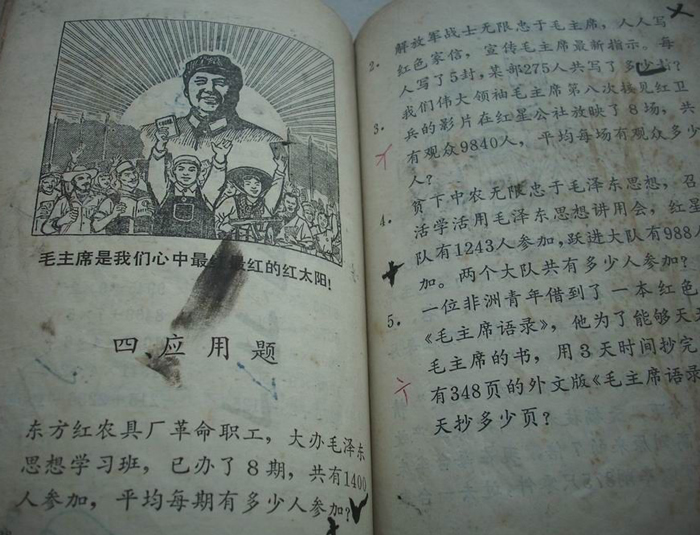 毛主席是我们心中最红最红的红太阳!
四、应用题
东方红农具厂革命职工,大办毛泽东
思想学习班,已办了8期,共有1400
人参加,平均每期有多少人参加?
2. 解放军战士无限忠于毛主席,人人写
红色家信,宣传毛主席最新指示。每
人写了5封,某部275人共写了多少封?
3. 我们伟大领袖毛主席第八次接见红卫
兵的影片在红星公社放映了8场,共
有观众9840人,平均每场有观众多少
人?
4. 贫下中农无限忠于毛泽东思想,召
活学活用毛泽东思想讲用会,红星
队有1243人参加,跃进大队有988人
加。两个大队共有多少人参加?
5. 一位非洲青年借到了一本红色
《毛主席语录》,他为了能够天天
毛主席的书,用3天时间抄完
有348页的外文版《毛主席语录
天抄多少页?